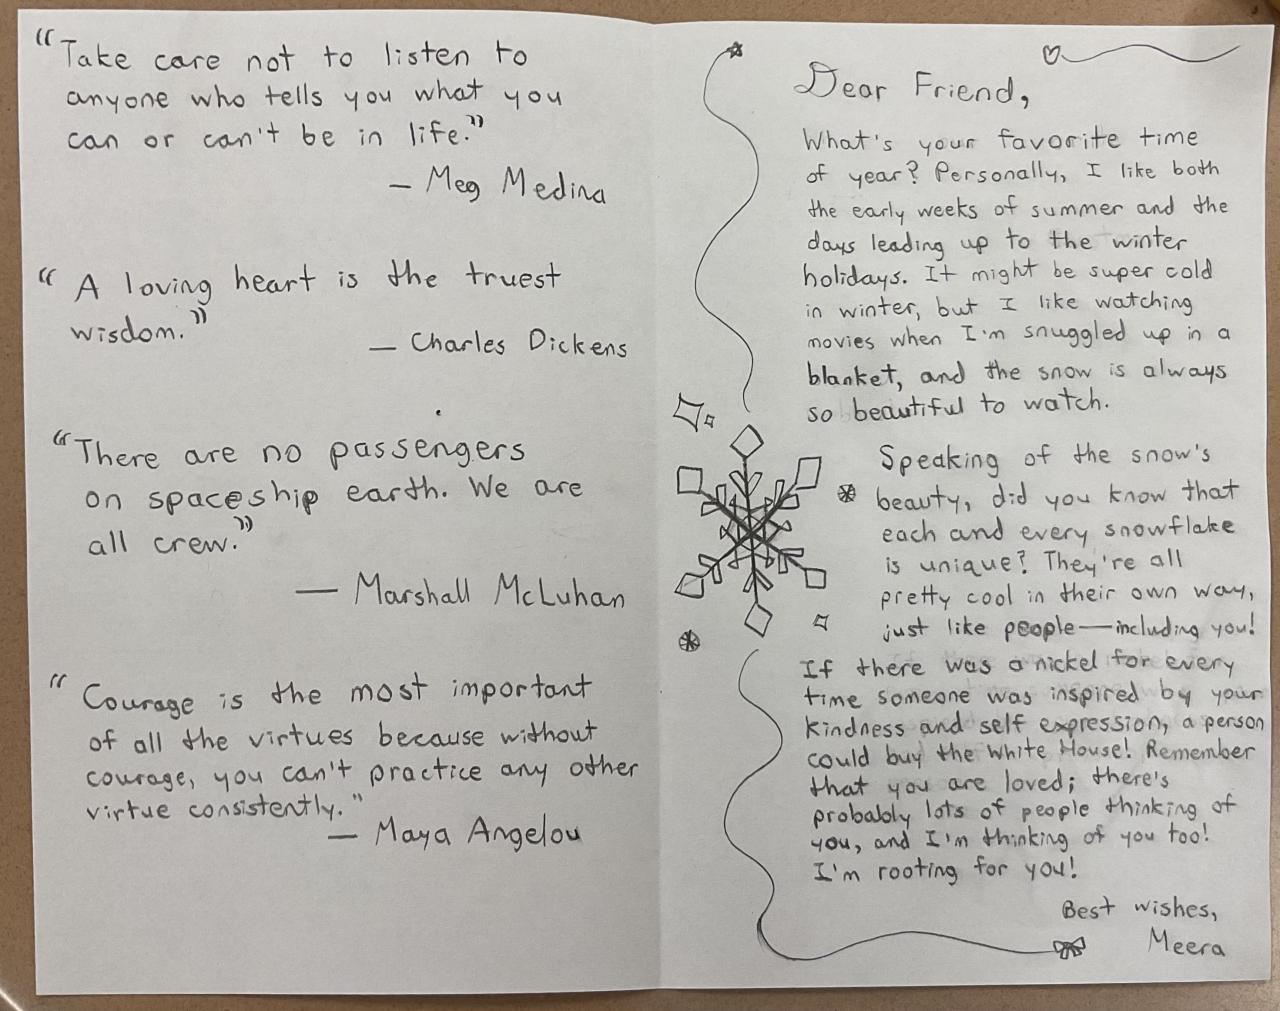 “Take care not to listen to
anyone who tells you what you
can or can't be in life.”
— Meg Medina
“A loving heart is the truest
wisdom.”
— Charles Dickens
“There are no passengers
on spaceship earth. We are
all crew.”
— Marshall McLuhan
“Courage is the most important
of all the virtues because without
courage, you can't practice any other
virtue consistently.”
— Maya Angelou
Dear Friend,
What's your favorite time
of year? Personally, I like both
the early weeks of summer and the
days leading up to the winter
holidays. It might be super cold
in winter, but I like watching
movies when I'm snuggled up in a
blanket, and the snow is always
so beautiful to watch.
Speaking of the snow's
beauty, did you know that
each and every snowflake
is unique? They're all
pretty cool in their own way,
just like people—including you!
If there was a nickel for every
time someone was inspired by your
kindness and self expression, a person
could buy the White House! Remember
that you are loved; there's
probably lots of people thinking of
you, and I'm thinking of you too!
I'm rooting for you!
Best wishes,
Meera